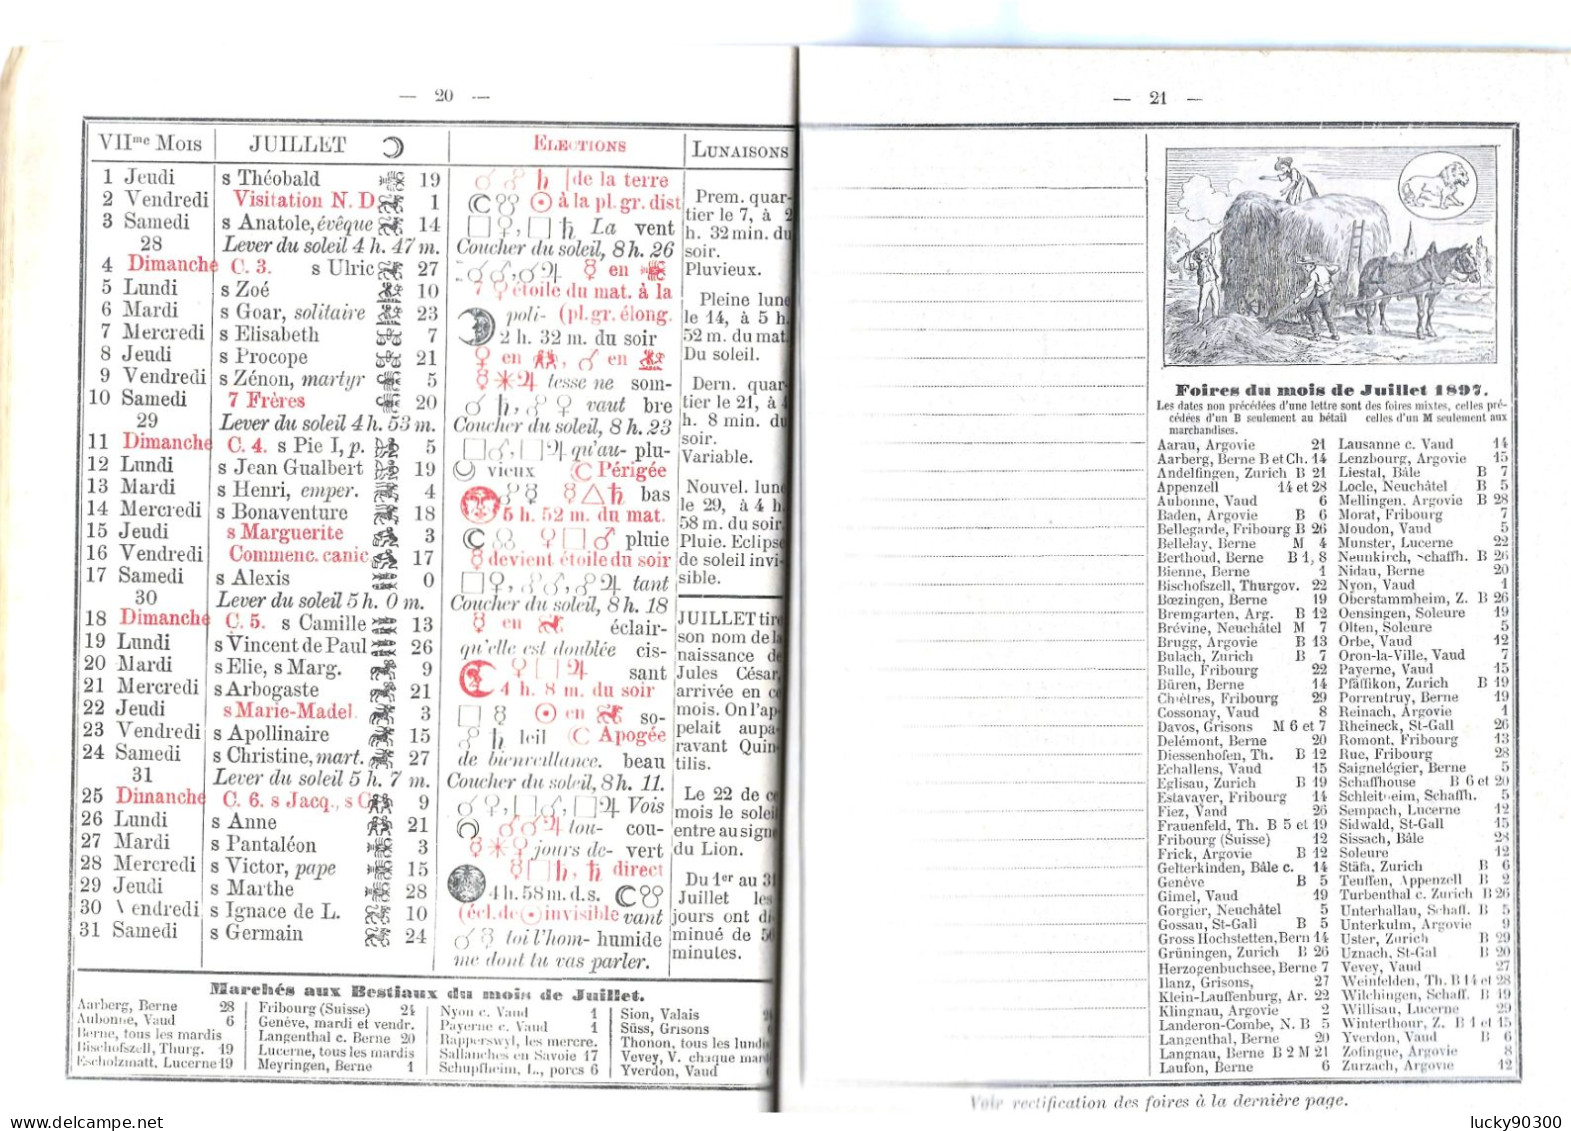 — 20 —
VIIme Mois JUILLET ELECTIONS LUNAISONS
1 Jeudi s Théobald 19 de la terre
2 Vendredi Visitation N. D 1 à la pl. gr. dist
3 Samedi s Anatole, évêque 14 La vent
28 Lever du soleil 4 h. 47 m. Coucher du soleil, 8 h. 26
4 Dimanche C. 3. s Ulric 27 en
5 Lundi s Zoé 10 étoile du mat. à la
6 Mardi s Goar, solitaire 23 poli- (pl. gr. élong.
7 Mercredi s Elisabeth 7 2 h. 32 m. du soir
8 Jeudi s Procope 21 en , en
9 Vendredi s Zénon, martyr 5 tesse ne som-
10 Samedi 7 Frères 20 vaut bre
29 Lever du soleil 4 h. 53 m. Coucher du soleil, 8 h. 23
11 Dimanche C. 4. s Pie I, p. 5 qu'au- plu-
12 Lundi s Jean Gualbert 19 vieux Périgée
13 Mardi s Henri, emper. 4 bas
14 Mercredi s Bonaventure 18 5 h. 52 m. du mat.
15 Jeudi s Marguerite 3 pluie
16 Vendredi Commenc. canic 17 devient étoile du soir
17 Samedi s Alexis 0 tant
30 Lever du soleil 5 h. 0 m. Coucher du soleil, 8 h. 18
18 Dimanche C. 5. s Camille 13 en éclair-
19 Lundi s Vincent de Paul 26 qu'elle est doublée cis-
20 Mardi s Elie, s Marg. 9 sant
21 Mercredi s Arbogaste 21 4 h. 8 m. du soir
22 Jeudi s Marie-Madel. 3 en so-
23 Vendredi s Apollinaire 15 leil Apogée
24 Samedi s Christine, mart. 27 de bienveillance. beau
31 Lever du soleil 5 h. 7 m. Coucher du soleil, 8 h. 11.
25 Dimanche C. 6. s Jacq., s C 9 Vois
26 Lundi s Anne 21 tou- cou-
27 Mardi s Pantaléon 3 jours de- vert
28 Mercredi s Victor, pape 15 direct
29 Jeudi s Marthe 28 4 h. 58 m. d. s.
30 Vendredi s Ignace de L. 10 (écl. de invisible vant
31 Samedi s Germain 24 toi l'hom- humide
me dont tu vas parler.
Prem. quar-
tier le 7, à 2
h. 32 min. du
soir.
Pluvieux.
Pleine lune
le 14, à 5 h.
52 m. du mat.
Du soleil.
Dern. quar-
tier le 21, à 4
h. 8 min. du
soir.
Variable.
Nouvel. lune
le 29, à 4 h.
58 m. du soir.
Pluie. Eclipse
de soleil invi-
sible.
JUILLET tire
son nom de la
naissance de
Jules César,
arrivée en ce
mois. On l'ap
pelait aupa-
ravant Quin
tilis.
Le 22 de ce
mois le soleil
entre au signe
du Lion.
Du 1er au 31
Juillet les
jours ont di-
minué de 56
minutes.
Marchés aux Bestiaux du mois de Juillet.
Aarberg, Berne 28
Aubonne, Vaud 6
Berne, tous les mardis
Bischofszell, Thurg. 19
Escholzmatt, Lucerne 19
Fribourg (Suisse) 24
Genève, mardi et vendr.
Langenthal c. Berne 20
Lucerne, tous les mardis
Meyringen, Berne 1
Nyon c. Vaud 1
Payerne c. Vaud 1
Rapperswyl, les mercre.
Sallanches en Savoie 17
Schupfheim, L., porcs 6
Sion, Valais
Süss, Grisons
Thonon, tous les lundis
Vevey, V. chaque mardi
Yverdon, Vaud
— 21 —
Foires du mois de Juillet 1897.
Les dates non précédées d'une lettre sont des foires mixtes, celles pré-
cédées d'un B seulement au bétail celles d'un M seulement aux
marchandises.
Aarau, Argovie 21
Aarberg, Berne B et Ch. 14
Andelfingen, Zurich B 21
Appenzell 14 et 28
Aubonne, Vaud 6
Baden, Argovie B 6
Bellegarde, Fribourg B 26
Bellelay, Berne M 4
Berthoud, Berne B 1, 8
Bienne, Berne 1
Bischofszell, Thurgov. 22
Bœzingen, Berne 19
Bremgarten, Arg. B 12
Brévine, Neuchâtel M 7
Brugg, Argovie B 13
Bulach, Zurich B 7
Bulle, Fribourg 22
Büren, Berne 14
Chiètres, Fribourg 29
Cossonay, Vaud 8
Davos, Grisons M 6 et 7
Delémont, Berne 20
Diessenhofen, Th. B 12
Echallens, Vaud 15
Eglisau, Zurich B 19
Estavayer, Fribourg 14
Fiez, Vand 26
Frauenfeld, Th. B 5 et 19
Fribourg (Suisse) 12
Frick, Argovie B 12
Gelterkinden, Bâle c. 14
Genève B 5
Gimel, Vaud 19
Gorgier, Neuchâtel 5
Gossau, St-Gall B 5
Gross Hochstetten, Bern 14
Grüningen, Zurich B 26
Herzogenbuchsee, Berne 7
Ilanz, Grisons, 27
Klein-Lauffenburg, Ar. 22
Klingnau, Argovie 2
Landeron-Combe, N. B 5
Langenthal, Berne 20
Langnau, Berne B 2 M 21
Laufon, Berne 6
Lausanne c. Vaud 14
Lenzbourg, Argovie 15
Liestal, Bâle B 7
Locle, Neuchâtel B 5
Mellingen, Argovie B 28
Morat, Fribourg 7
Moudon, Vaud 5
Munster, Lucerne 22
Neunkirch, Schaffh. B 26
Nidau, Berne 20
Nyon, Vaud 1
Oberstammheim, Z. B 26
Oensingen, Soleure 19
Olten, Soleure 5
Orbe, Vaud 12
Oron-la-Ville, Vaud 7
Payerne, Vaud 15
Pfäffikon, Zurich B 19
Porrentruy, Berne 19
Reinach, Argovie 1
Rheineck, St-Gall 26
Romont, Fribourg 13
Rue, Fribourg 28
Saignelégier, Berne 5
Schaffhouse B 6 et 20
Schleitheim, Schaffh. 5
Sempach, Lucerne 12
Sidwald, St-Gall 15
Sissach, Bâle 28
Soleure 12
Stäfa, Zurich B 6
Teuffen, Appenzell B 2
Turbenthal c. Zurich B 26
Unterhallau, Schaff. B 5
Unterkulm, Argovie 9
Uster, Zurich B 29
Uznach, St-Gal B 20
Vevey, Vaud 27
Weinfelden, Th. B 14 et 28
Wilchingen, Schaff. B 19
Willisau, Lucerne 29
Winterthour, Z. B 1 et 15
Yverdon, Vaud B 6
Zofingue, Argovie 8
Zurzach, Argovie 12
Voir rectification des foires à la dernière page.
delcampe.net
lucky90300